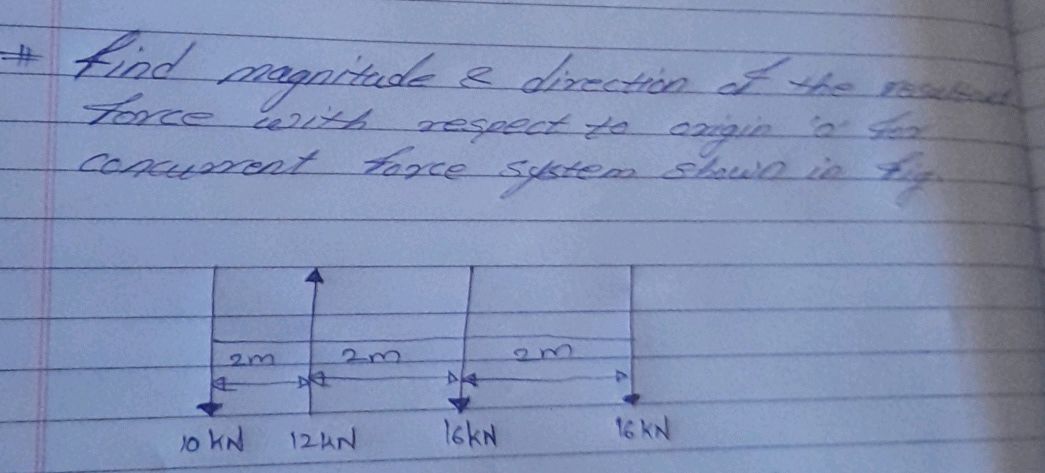 # find magnitude & direction of the
force with respect to origin 'o' for
concurrent force system shown in fig.
2m 2m 2m
10 KN 12 KN 16KN 16 KN